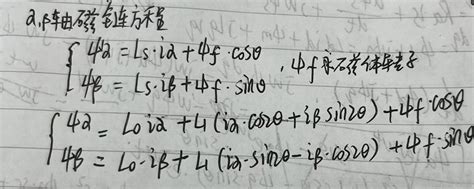 α,β轴由磁链方程
ψα = Ls·iα + ψf·cosθ
ψβ = Ls·iβ + ψf·sinθ , ψf 永磁体
ψα = L0 iα + L1 (iα·cos2θ + iβ sin2θ) + ψf·cosθ
ψβ = L0·iβ + L1 (iα·sin2θ - iβ·cos2θ) + ψf·sinθ